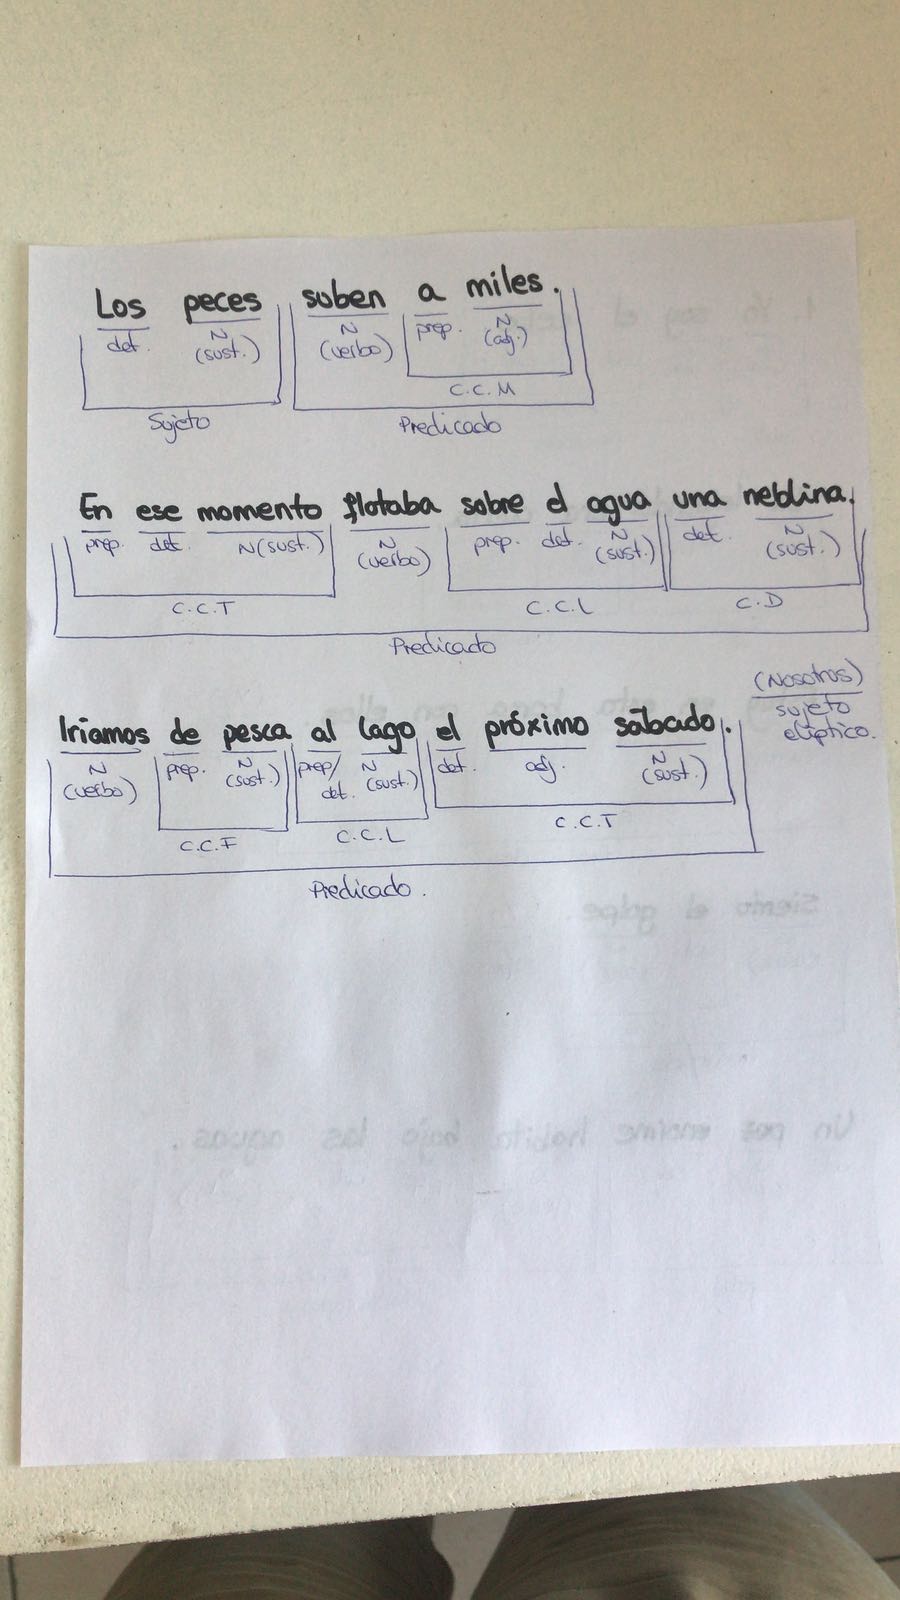 Los peces suben a miles.
det. N N prep. N
(sust.) (verbo) (adj.)
C.C.M
Sujeto Predicado
En ese momento flotaba sobre el agua una neblina.
prep. det. N(sust.) N prep. det. N det. N
(verbo) (sust.) (sust.)
C.C.T C.C.L C.D
Predicado
(Nosotros)
sujeto
elíptico.
Iríamos de pesca al lago el próximo sábado.
N prep. N prep/ N det. adj. N
(verbo) (sust.) det. (sust.) (sust.)
C.C.F C.C.L C.C.T
Predicado.